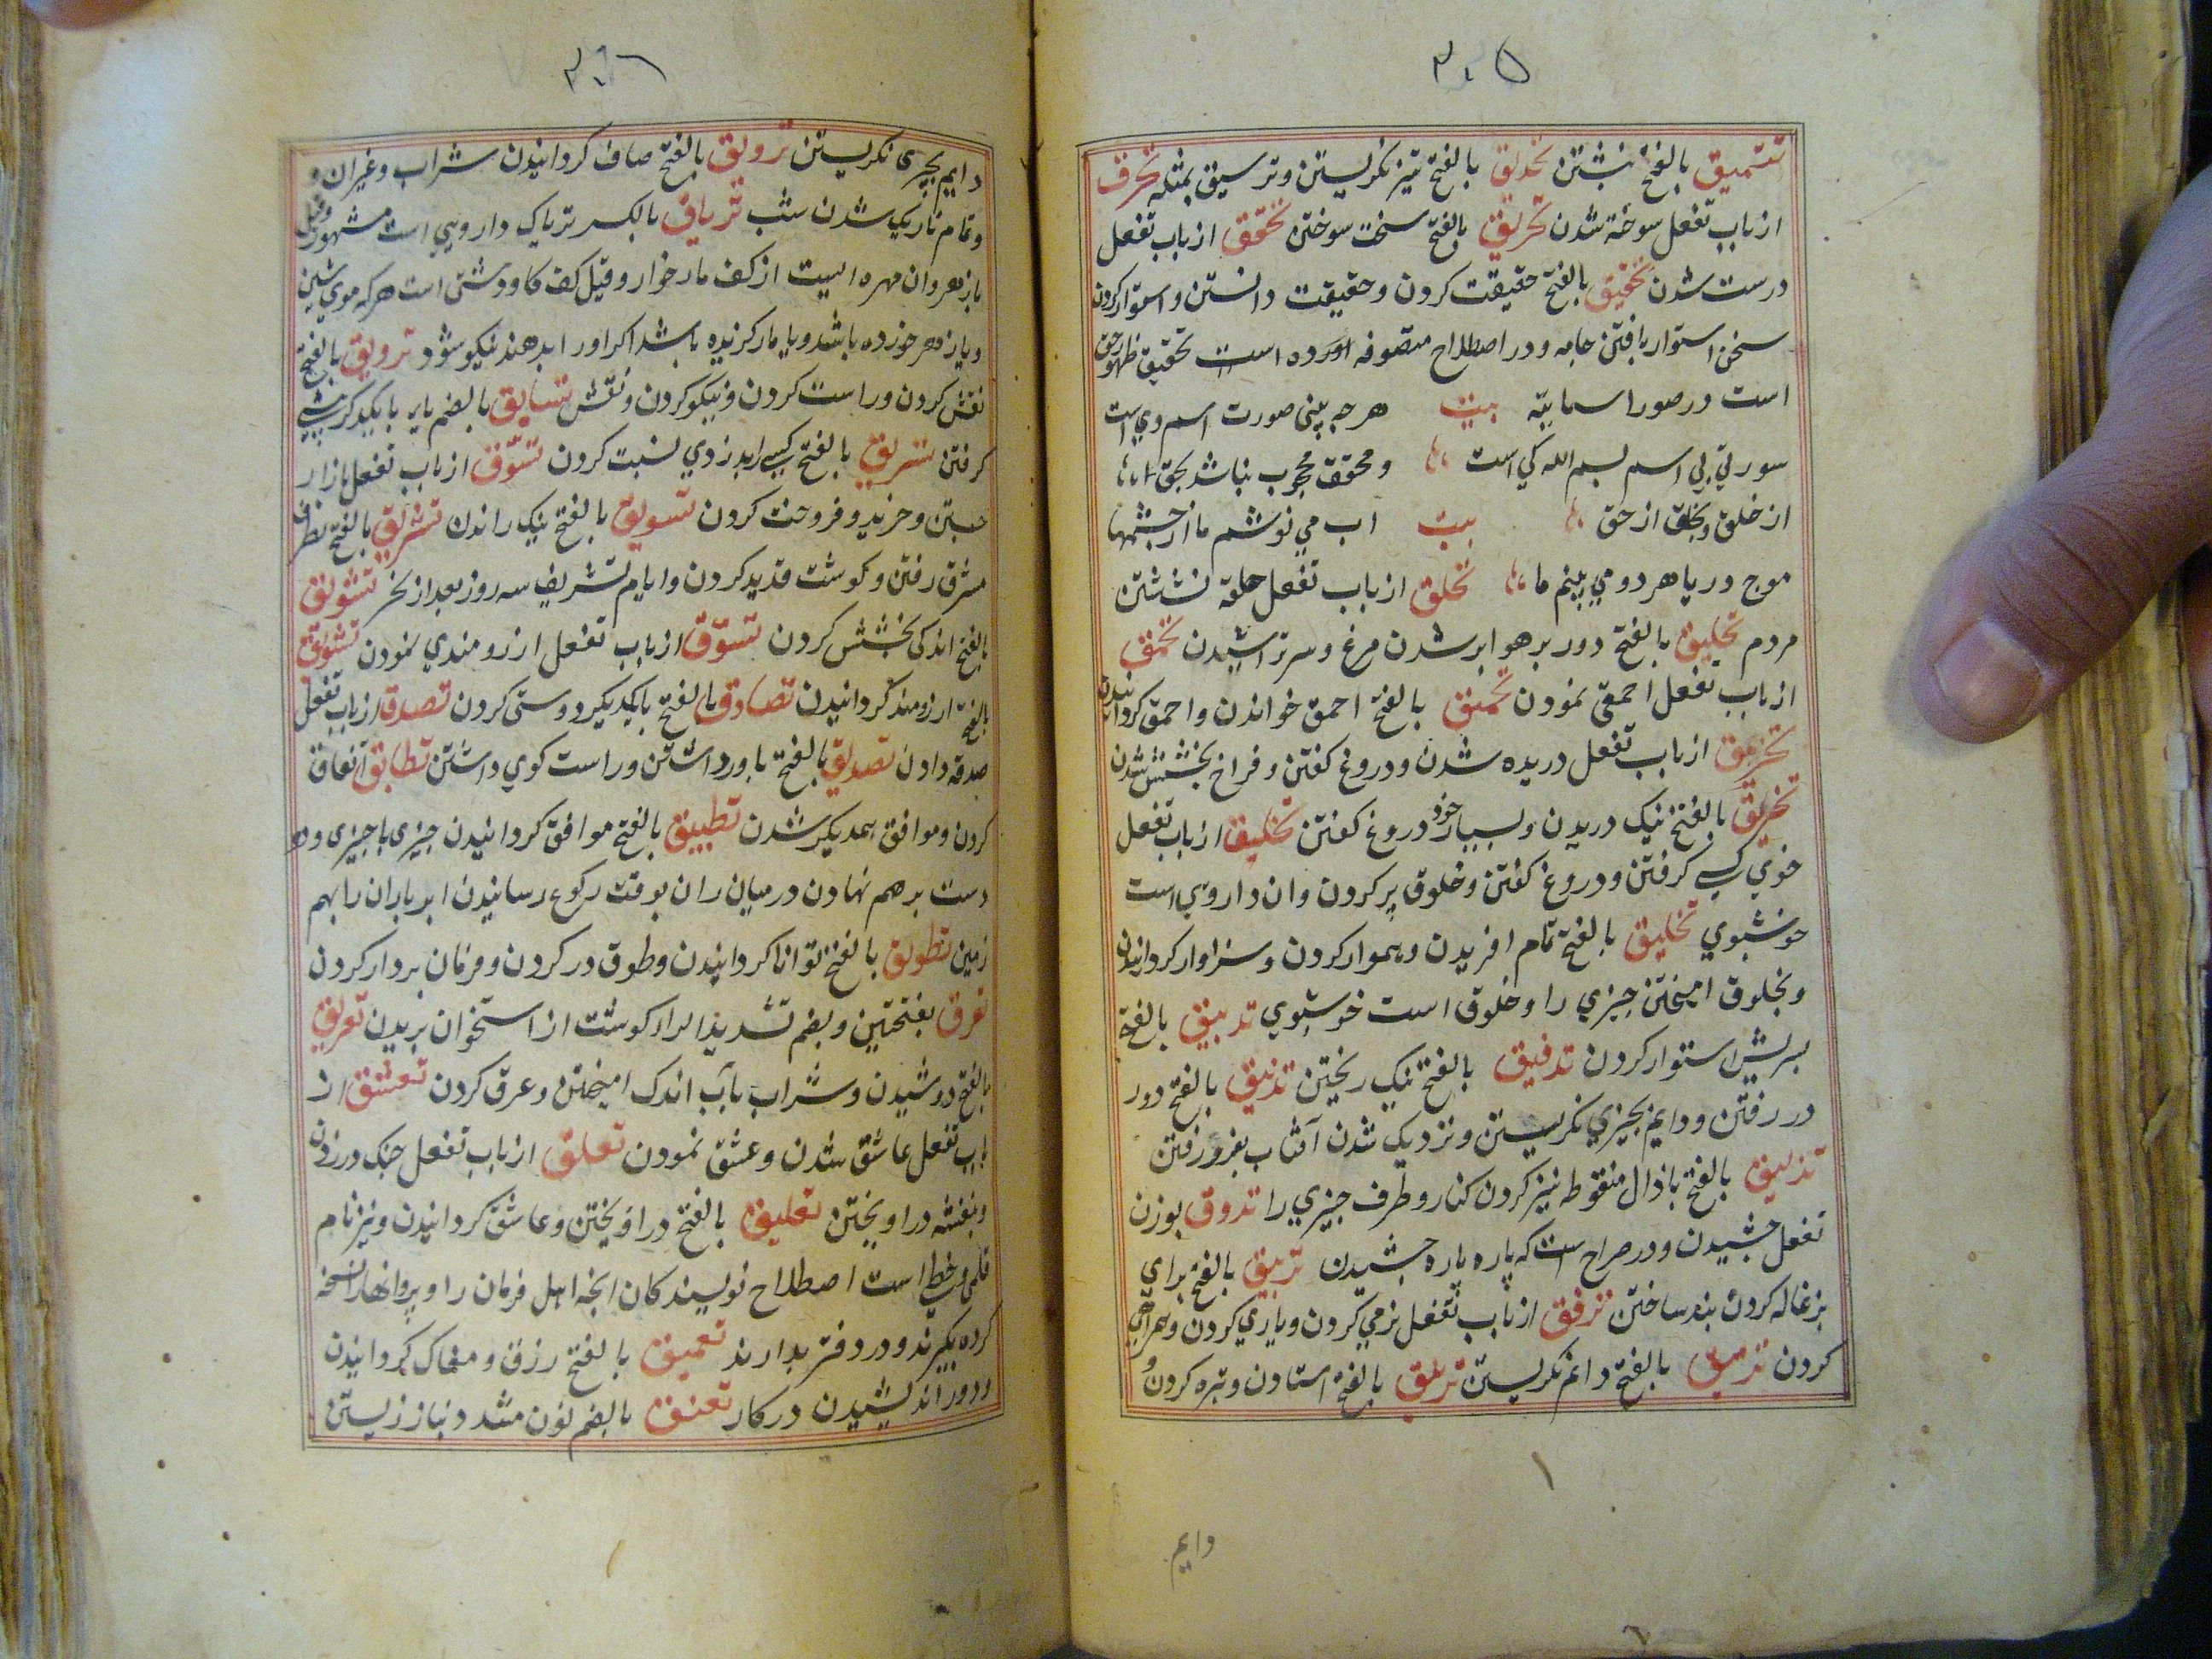 ۳۰۵
تنمیق بالفتح نبشتن تحدیق بالفتح تیز نکریستن و ترسیق بمثله تحرق
از باب تفعل سوخته شدن تحریق بالفتح سخت سوختن تحقق از باب تفعل
درست شدن تحقیق بالفتح حقیقت کردن و حقیقت دانستن و استوار کردن
سخن استوار بافتن جامه و در اصطلاح متصوفه اورده است تحقیق ظهور حق
است در صور اسمائیه بیت هرچه بینی صورت اسم وی است
اسم بسم الله کی است و محقق محجوب نباشد بحق
از خلق و بخلق از حق بیت اب می نوشم ما از چشمها
موج دریا هر دو می بینم ما تحلق از باب تفعل حلقه نشستن
مردم تحلیق بالفتح دور بر هوا بر شدن مرغ و سر تراشیدن تحمق
از باب تفعل احمقی نمودن تحمیق بالفتح احمق خواندن و احمق کردانیدن
تخرق از باب تفعل دریده شدن و دروغ کفتن و فراخ بخشش شدن
تخریق بالفتح نیک دریدن و بسیار خود دروغ کفتن تخلیق از باب تفعل
خوی کسی کرفتن و دروغ کفتن و خلوق پر کردن وان داروی است
خوشبوی تخلیق بالفتح تمام افریدن و هموار کردن و سزاوار کردانیدن
و بخلوق امیختن چیزی را و خلوق است خوشبوی تدبیق بالفتح
بسریش استوار کردن تدفیق بالفتح نیک ریختن تدنیق بالفتح دور
در رفتن و دایم بچیزی نکریستن و نزدیک شدن آفتاب بفرو رفتن
تذلیق بالفتح با ذال منقوطه تیز کردن کنار و طرف چیزی را تذوق بوزن
تفعل چشیدن و در صراح است که پاره پاره چشیدن تربیق بالفتح برای
بزغاله کردن بند ساختن ترفق از باب تفعل نرمی کردن و یاری کردن و همراهی
کردن ترمیق بالفتح دائم نکریستن ترنیق بالفتح استادن و تیره کردن و
دایم
۳۰۶
دایم بچیزی نکریستن ترویق بالفتح صاف کردانیدن شراب و غیران و
و تمام تاریک شدن شب تریاق بالکسر تریاک دارویی است مشهور و قیل
پازهر وان مهره ایست از کف مار خوار و قیل کف کاو دشتی است هرکه موی شیر
و یا زهر خورده باشد و یا مار کزیده باشد اکر او را بدهند نیکو شود تزویق بالفتح
نقش کردن و راست کردن و نیکو کردن و نقش تسابق بالضم با یکدیکر پیشی
کرفتن تسریق بالفتح کسی را بدزدی نسبت کردن تسوق از باب تفعل بازار
جستن و خرید و فروخت کردن تسویق بالفتح نیک راندن تشریق بالفتح بطرف
مشرق رفتن و کوشت قدید کردن و ایام تشریق سه روز بعد از نحر تشویق
بالفتح اندکی بخشش کردن تشوق از باب تفعل ارزومندی نمودن تشویق
بالفتح ارزومند کردانیدن تصادق بالفتح با یکدیکر دوستی کردن تصدق از باب تفعل
صدقه دادن تصدیق بالفتح باور داشتن و راست کوی داشتن تطابق اتفاق
کردن و موافق همدیکر شدن تطبیق بالفتح موافق کردانیدن چیزی با چیزی و دو
دست برهم نهادن در میان ران بوقت رکوع رسانیدن ابر باران را بهم
زمین تطویق بالفتح توانا کردانیدن و طوق در کردن و فرمان بردار کردن
تعرق بفتحتین و بضم تشدید الرا از کوشت از استخوان بریدن تعریق
بالفتح دوشیدن و شراب بآب اندک امیختن و عرق کردن تعشق از
باب تفعل عاشق شدن و عشق نمودن تعلق از باب تفعل چنک در زدن
و بنفشه دراویختن تعلیق بالفتح دراویختن و عاشق کردانیدن و نیز نام
قلمی و خط است اصطلاح نویسندکان انچه اهل فرمان را و پروانها را نسخه
کرده بکیرند و در دفتر بدارند تعمیق بالفتح رزق و مغاک کردانیدن
و دور اندیشیدن در کار تعنق بالضم نون مشدد نیاز زیستن